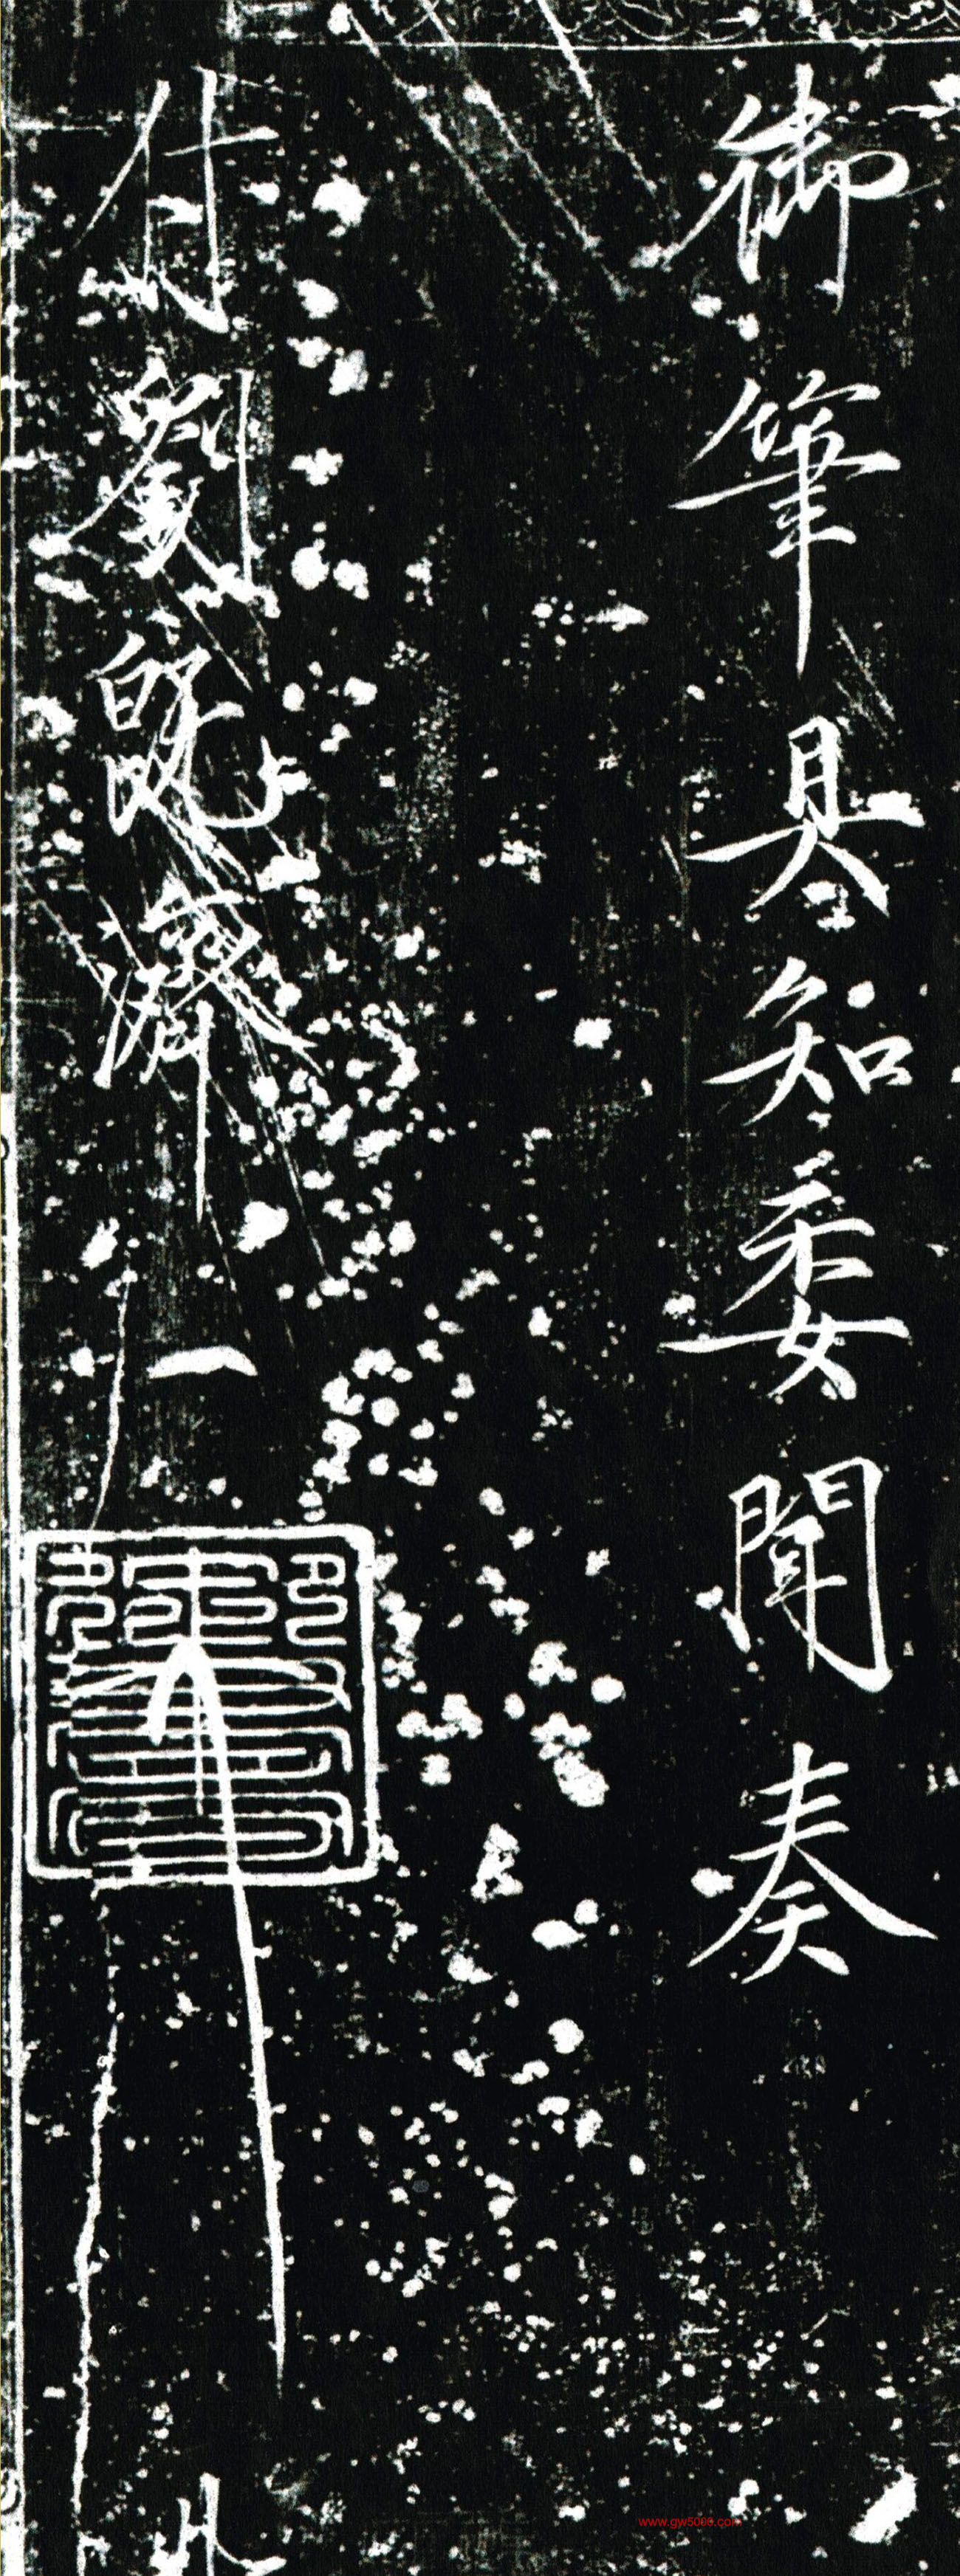 御筆具知委聞奏
付劉既濟
www.gw5000.com